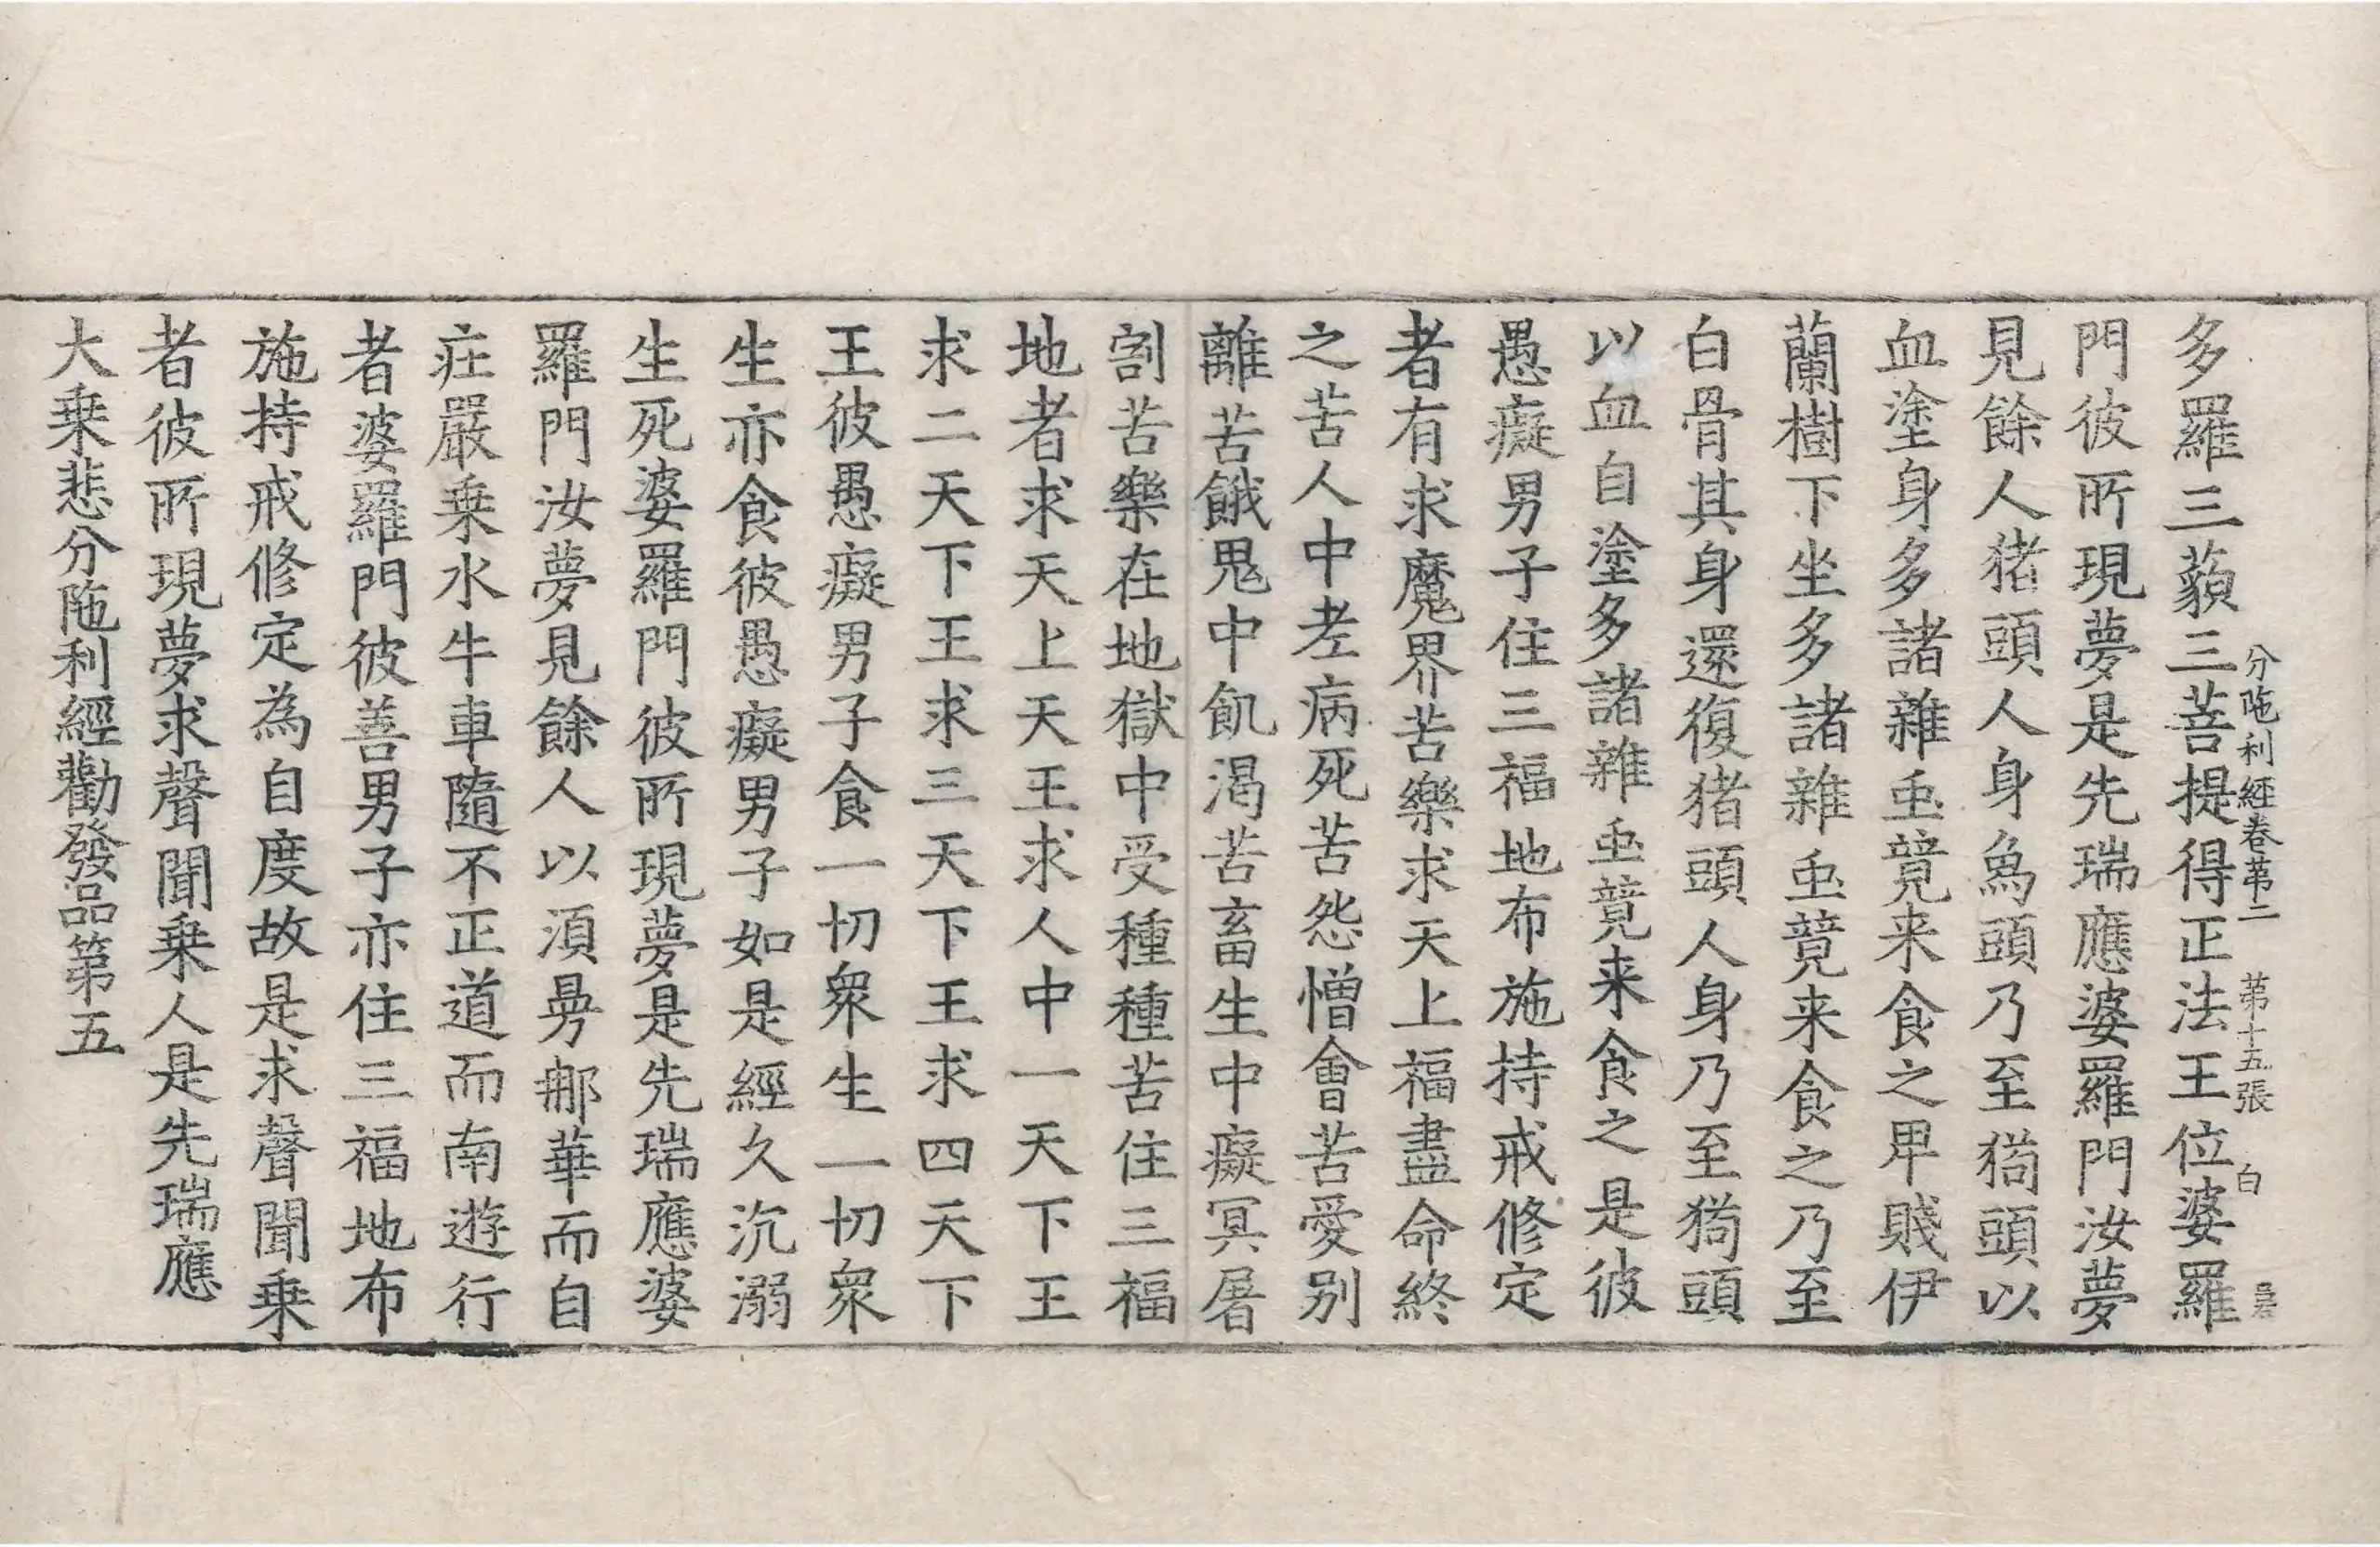 分陁利經卷苐二 苐十五張 白
多羅三藐三菩提得正法王位婆羅
門彼所現夢是先瑞應婆羅門汝夢
見餘人猪頭人身爲頭乃至猗頭以
血塗身多諸雜䖝競来食之卑賤伊
蘭樹下坐多諸雜䖝競来食之乃至
白骨其身還復猪頭人身乃至猗頭
以血自塗多諸雜䖝競来食之是彼
愚癡男子住三福地布施持戒修定
者有求魔界苦樂求天上福盡命終
之苦人中老病死苦怨憎會苦愛别
離苦餓鬼中飢渴苦畜生中癡冥屠
割苦樂在地獄中受種種苦住三福
地者求天上天王求人中一天下王
求二天下王求三天下王求四天下
王彼愚癡男子食一切衆生一切衆
生亦食彼愚癡男子如是經久沉溺
生死婆羅門彼所現夢是先瑞應婆
羅門汝夢見餘人以須曼𨚗華而自
莊嚴乗水牛車隨不正道而南遊行
者婆羅門彼善男子亦住三福地布
施持戒修定為自度故是求聲聞乗
者彼所現夢求聲聞乗人是先瑞應
大乗悲分陁利經勸發品第五